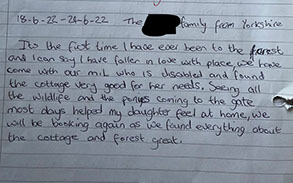 18-6-22 - 24-6-22 The family from Yorkshire
Its the first time I have ever been to the forest
and I can say I have fallen in love with place, we have
come with our mil who is disabled and found
the cottage very good for her needs. Seeing all
the wildlife and the ponys coming to the gate
most days helped my daughter feel at home, we
will be booking again as we found everything about
the cottage and forest great.